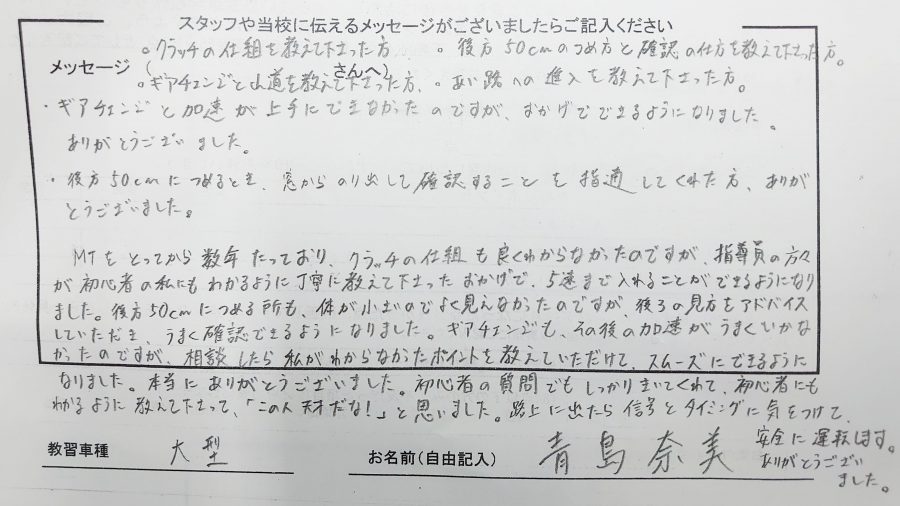 スタッフや当校に伝えるメッセージがございましたらご記入ください
メッセージ(さんへ)
○クラッチの仕組を教えて下さった方 ○後方50cmのつめ方と確認の仕方を教えて下さった方。
○ギアチェンジと山道を教えて下さった方、○あい路への進入を教えて下さった方。
・ギアチェンジと加速が上手にできなかったのですが、おかげでできるようになりました。
ありがとうございました。
・後方50cmにつめるとき、窓からのり出して確認することを指適してくれた方、ありが
とうございました。
MTをとってから数年たっており、クラッチの仕組も良くわからなかったのですが、指導員の方々
が初心者の私にもわかるように丁寧に教えて下さったおかげで、5速まで入れることができるようになり
ました。後方50cmにつめる所も、体が小さいのでよく見えなかったのですが、後ろの見方をアドバイス
していただき、うまく確認できるようになりました。ギアチェンジも、その後の加速がうまくいかな
かったのですが、相談したら私がわからなかったポイントを教えていただけて、スムーズにできるように
なりました。本当にありがとうございました。初心者の質問でもしっかりきいてくれて、初心者にも
わかるように教えて下さって、「この人天才だな!」と思いました。路上に出たら信号とタイミングに気をつけて、
安全に運転します。
ありがとうござい
ました。
教習車種 大型
お名前(自由記入) 青島奈美